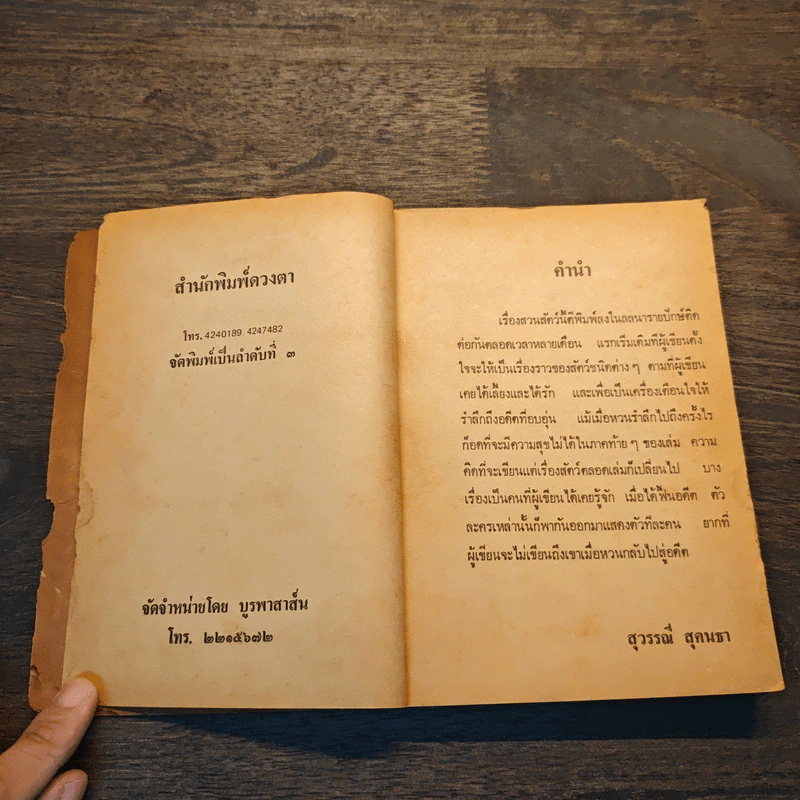 สำนักพิมพ์ดวงตา
โทร. 4240189. 4247482
จัดพิมพ์เป็นลำดับที่ ๓
จัดจำหน่ายโดย บูรพาสาส์น
โทร. ๒๒๑๕๖๗๒
คำนำ
เรื่องสวนสัตว์นี้ตีพิมพ์ลงในลลนารายปักษ์ติด
ต่อกันตลอดเวลาหลายเดือน แรกเริ่มเดิมทีผู้เขียนตั้ง
ใจจะให้เป็นเรื่องราวของสัตว์ชนิดต่าง ๆ ตามที่ผู้เขียน
เคยได้เลี้ยงและได้รัก และเพื่อเป็นเครื่องเตือนใจให้
รำลึกถึงอดีตที่อบอุ่น แม้เมื่อหวนรำลึกไปถึงครั้งไร
ก็อดที่จะมีความสุขไม่ได้ในภาคท้าย ๆ ของเล่ม ความ
คิดที่จะเขียนแต่เรื่องสัตว์ตลอดเล่มก็เปลี่ยนไป บาง
เรื่องเป็นคนที่ผู้เขียนได้เคยรู้จัก เมื่อได้ฟื้นอดีต ตัว
ละครเหล่านั้นก็พากันออกมาแสดงตัวทีละคน ยากที่
ผู้เขียนจะไม่เขียนถึงเขาเมื่อหวนกลับไปสู่อดีต
สุวรรณี สุคนธา